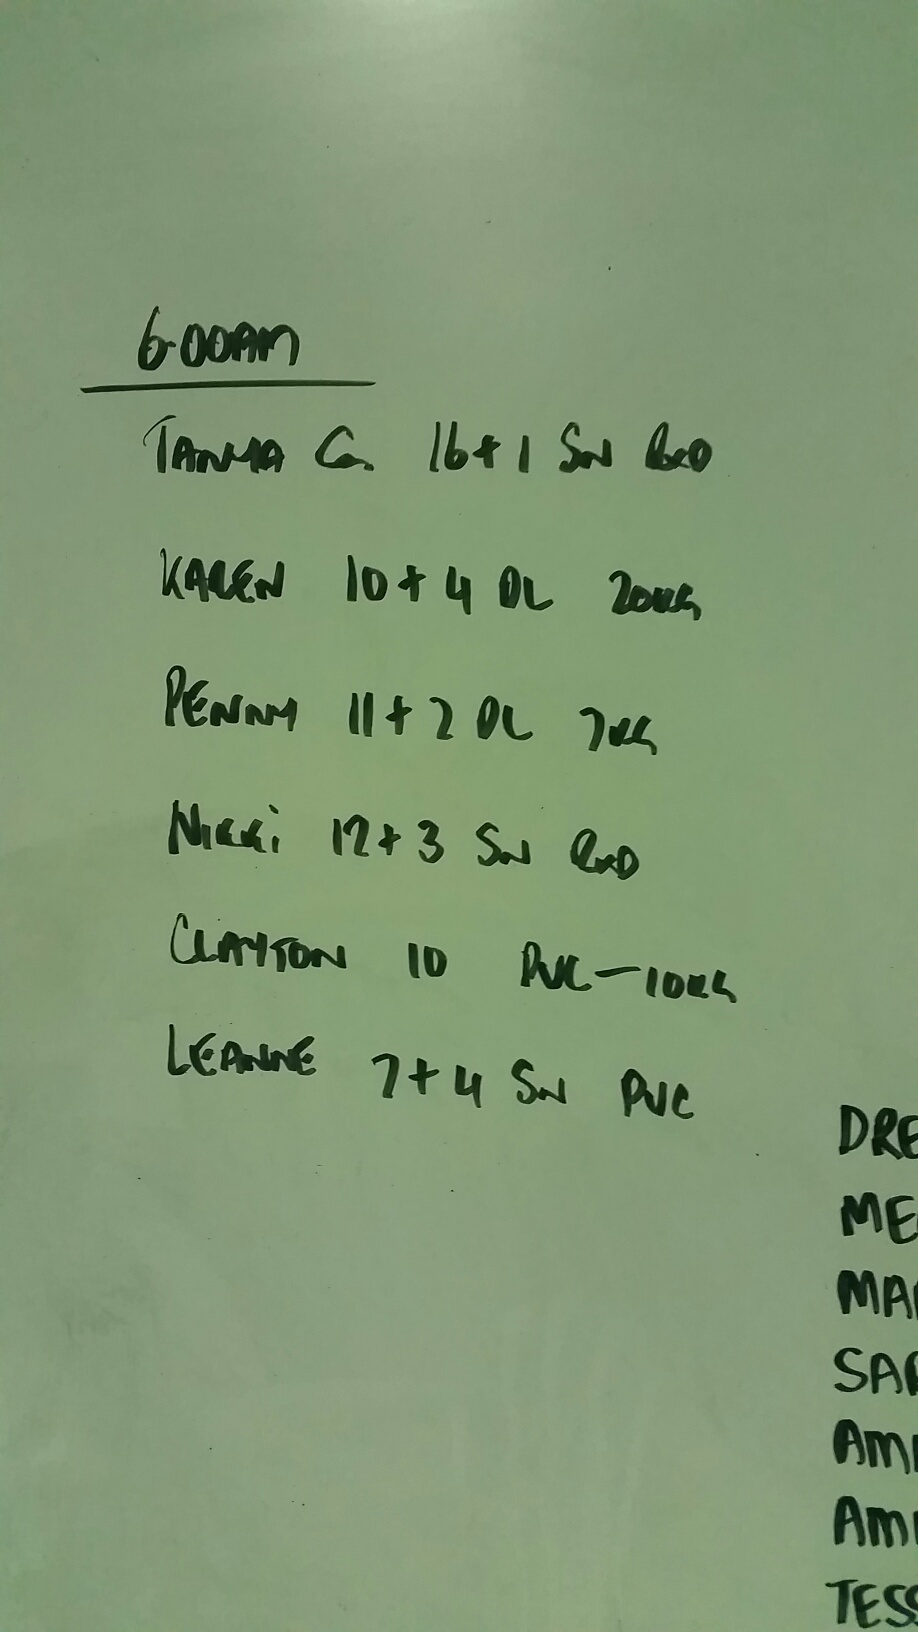 6:00AM
TANYA G. 16+1 SN RXD
KAREN 10+4 DL 20KG
PENNY 11+2 DL 7KG
NIKKI 12+3 SN RXD
CLAYTON 10 PVC-10KG
LEANNE 7+4 SN PVC
DRE
ME
MA
SAR
AM
AM
TESS